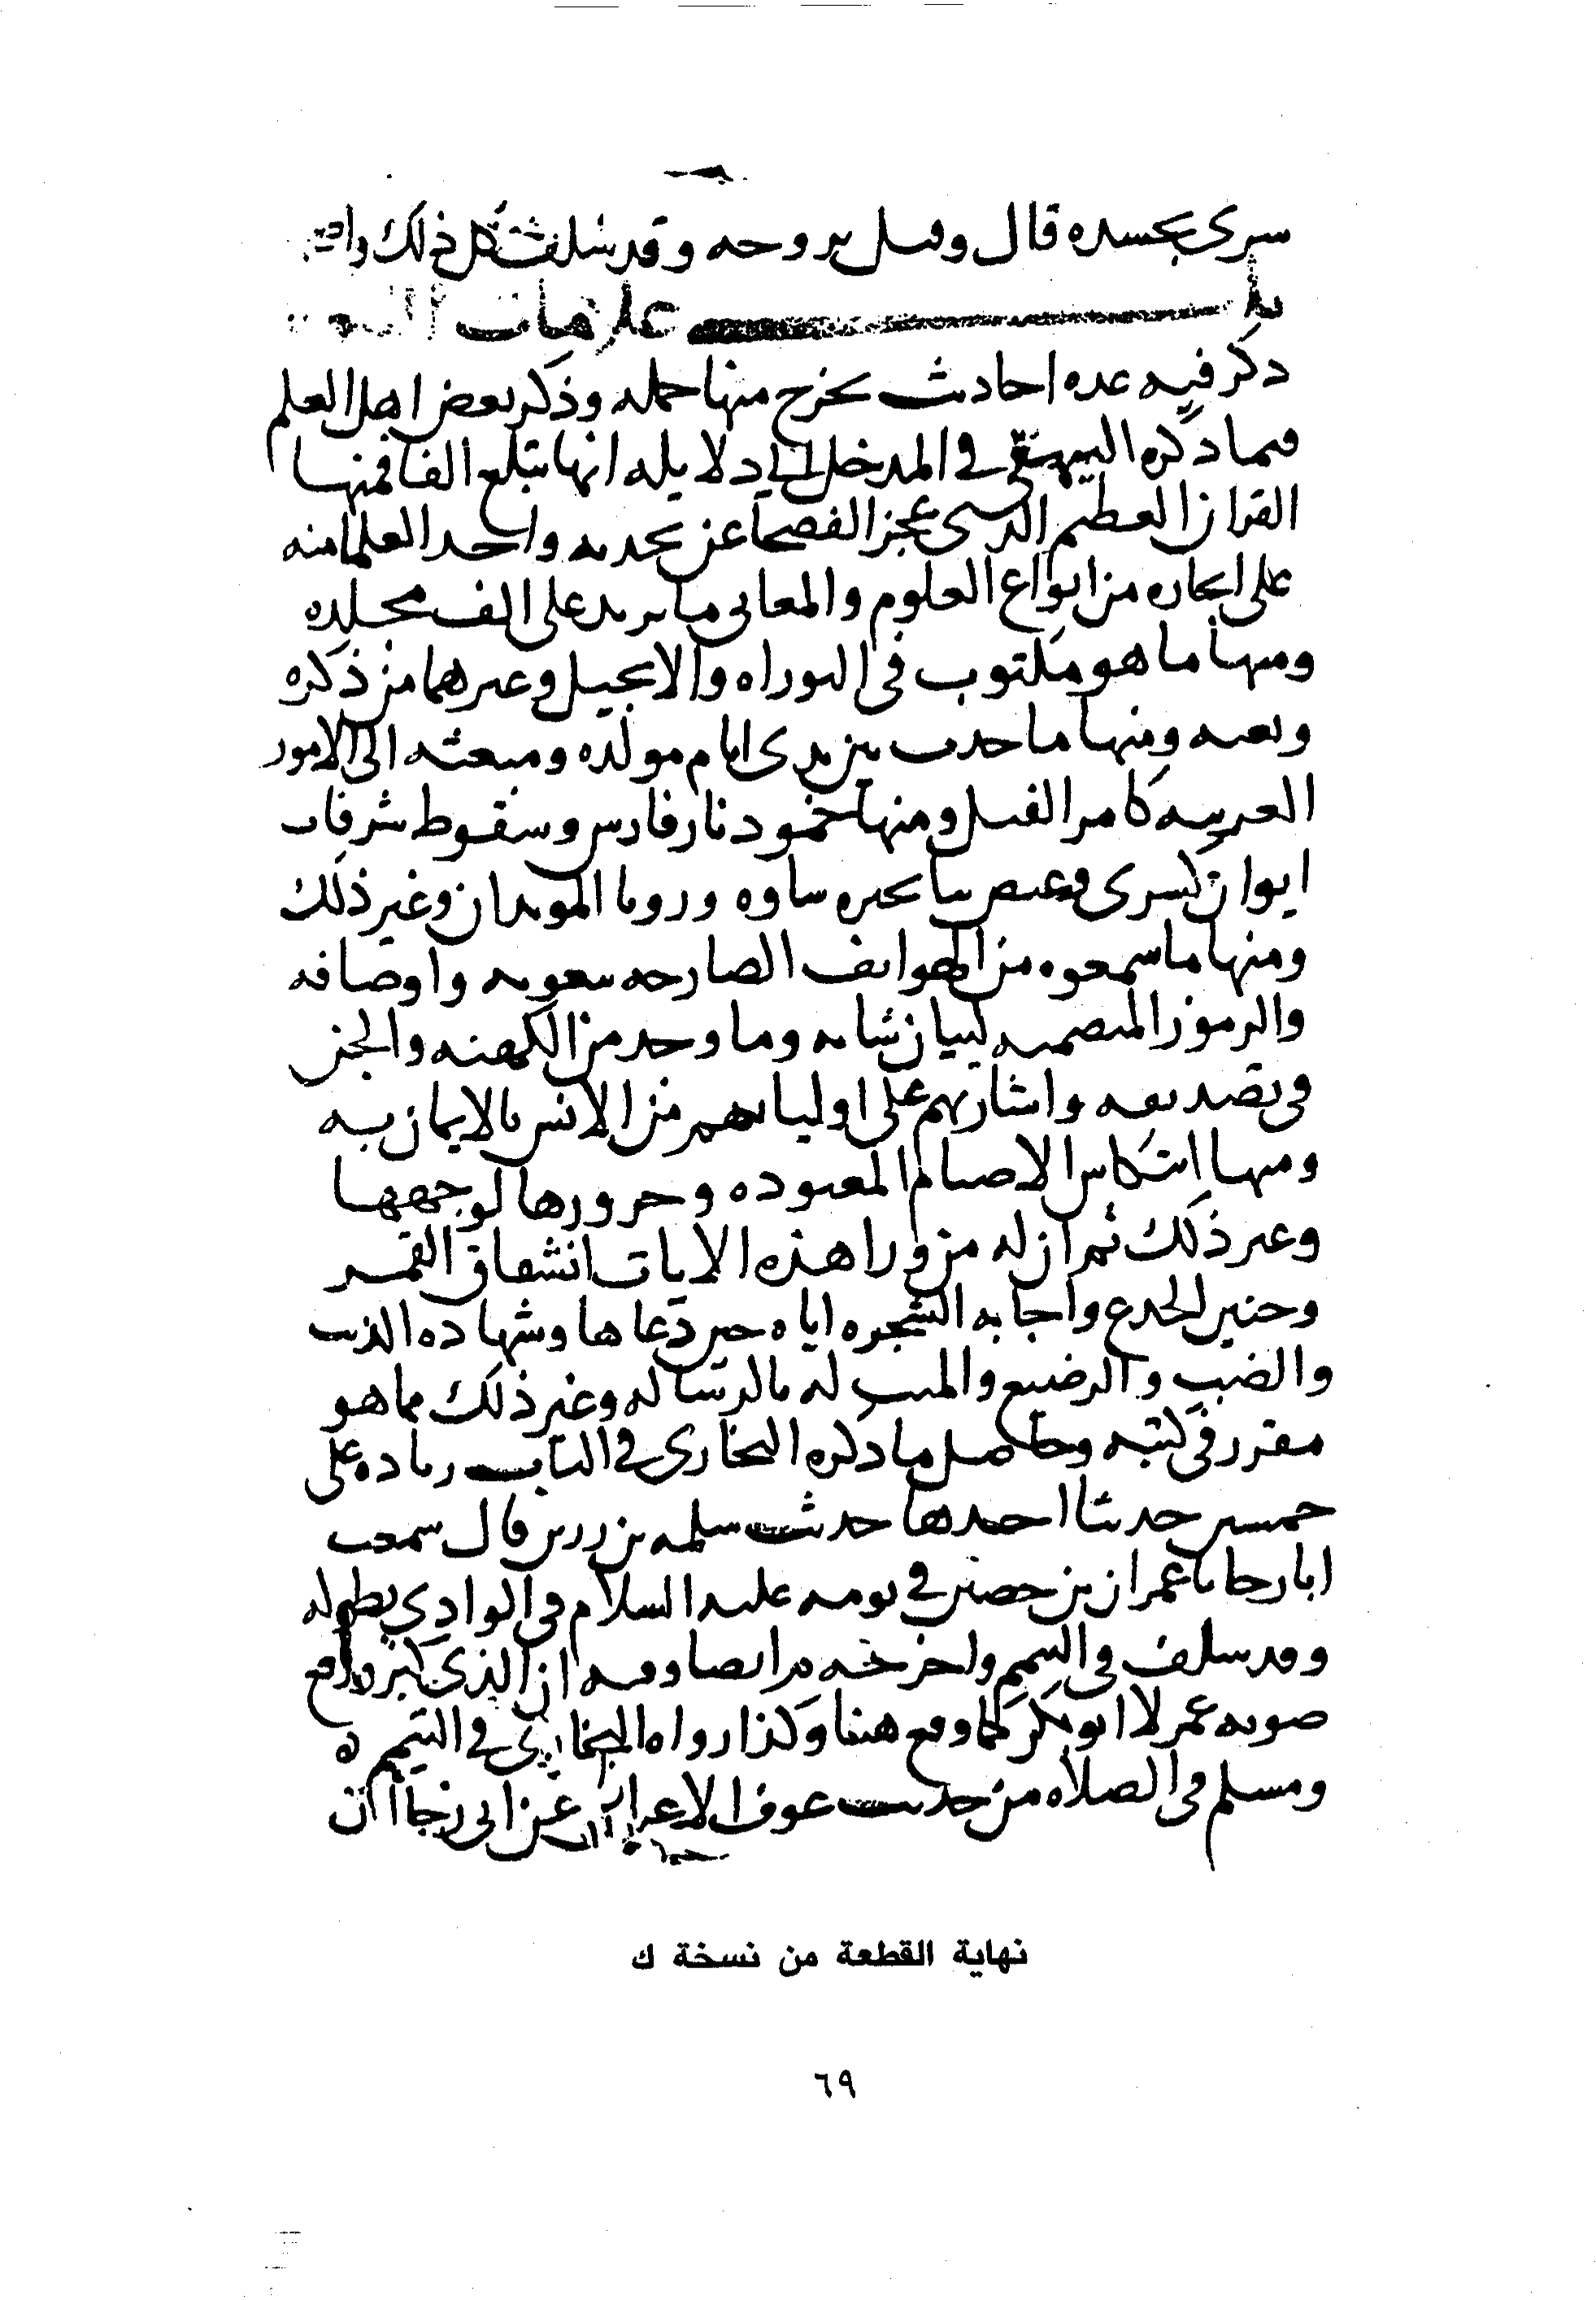 سرى بجسده قال وقيل بروحه وقد سلف كل ذلك
باب علامات
ذكر فيه عده احاديث يخرج منها جمله وذكر بعض اهل العلم
فيما ذكره البيهقي في المدخل الى دلايله انها تبلغ الفا فمنها
القران العظيم الذى عجز الفصحا عن تحديه واحد العلما منه
على ايجازه من انواع العلوم والمعانى ما يزيد على الف مجلده
ومنها ما هو مكتوب فى التوراه والانجيل وغيرهما من ذكره
ونعته ومنها ما حدث بين يدى ايام مولده ومبعثه الى الامور
الغريبه كامر الفيل ومنها خمود نار فارس وسقوط شرفات
ايوان كسرى وغيض ما بحيره ساوه ورويا الموبذان وغير ذلك
ومنها ما سمعوه من الهواتف الصارخه بنعوته واوصافه
والرموز المتضمنه لبيان شانه وما وجد من الكهنه والجن
فى تصديقه واشارتهم على اوليايهم من الانس بالايمان به
ومنها انتكاس الاصنام المعبوده وخرورها لوجهها
وغير ذلك ثم ان له من ورا هذه الايات انشقاق القمر
وحنين الجذع واجابه الشجره اياه حين دعاها وشهاده الذيب
والضب والرضيع والميت له بالرساله وغير ذلك مما هو
مقرر فى كتبه وحاصل ما ذكره البخارى في الباب زياده على
خمسين حديثا احدها حديث سلم بن زرير قال سمعت
ابا رجا نا عمران بن حصين في نومه عليه السلام في الوادي بطوله
وقد سلف في التيمم واخرجه م ايضا وفيه ان الذى كبر ورفع
صوته عمر لا ابو بكر كما وقع هنا وكذا رواه البخارى في التيمم ه
ومسلم في الصلاه من حديث عوف الاعرابي عن ابى رجا ان
نهاية القطعة من نسخة ك
٦٩